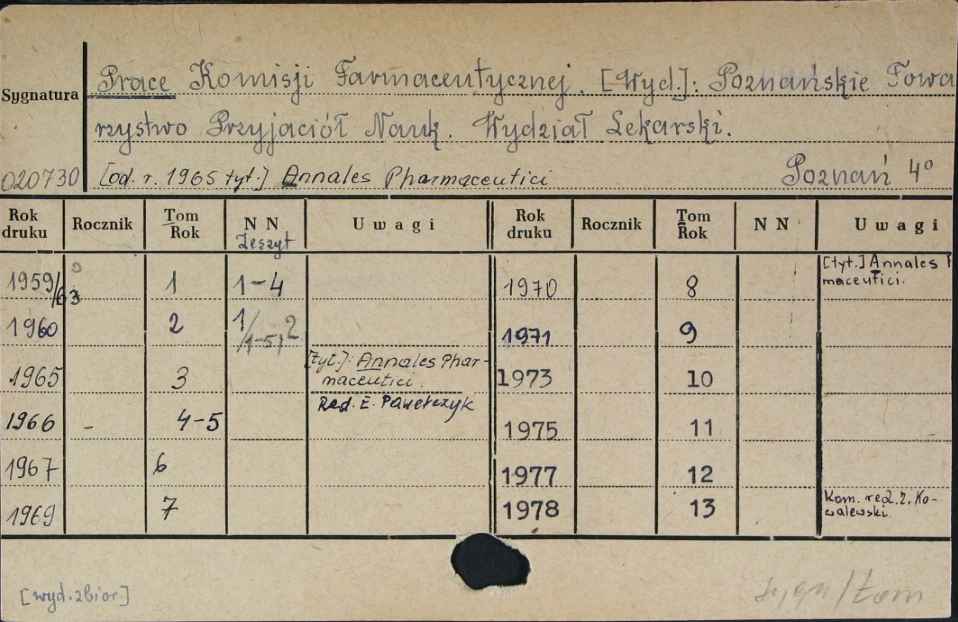 Sygnatura
Prace Komisji Farmaceutycznej. [Wyd.]: Poznańskie Towa
rzystwo Przyjaciół Nauk. Wydział Lekarski.
020730 [od. r. 1965 tyt.] Annales Pharmaceutici Poznań 4º
Rok druku Rocznik Tom Rok N N Zeszyt Uwagi Rok druku Rocznik Tom Rok N N Uwagi
1959/63 1 1-4 1970 8 [tyt.] Annales P
maceutici.
1960 2 1/1-5, 2 1971 9
1965 3 [tyt.]: Annales Phar-
maceutici. 1973 10
Red. E. Pawełczyk
1966 - 4-5 1975 11
1967 6 1977 12
1969 7 1978 13 Kom. red. Z. Ko-
walewski.
[wyd. zbior.]